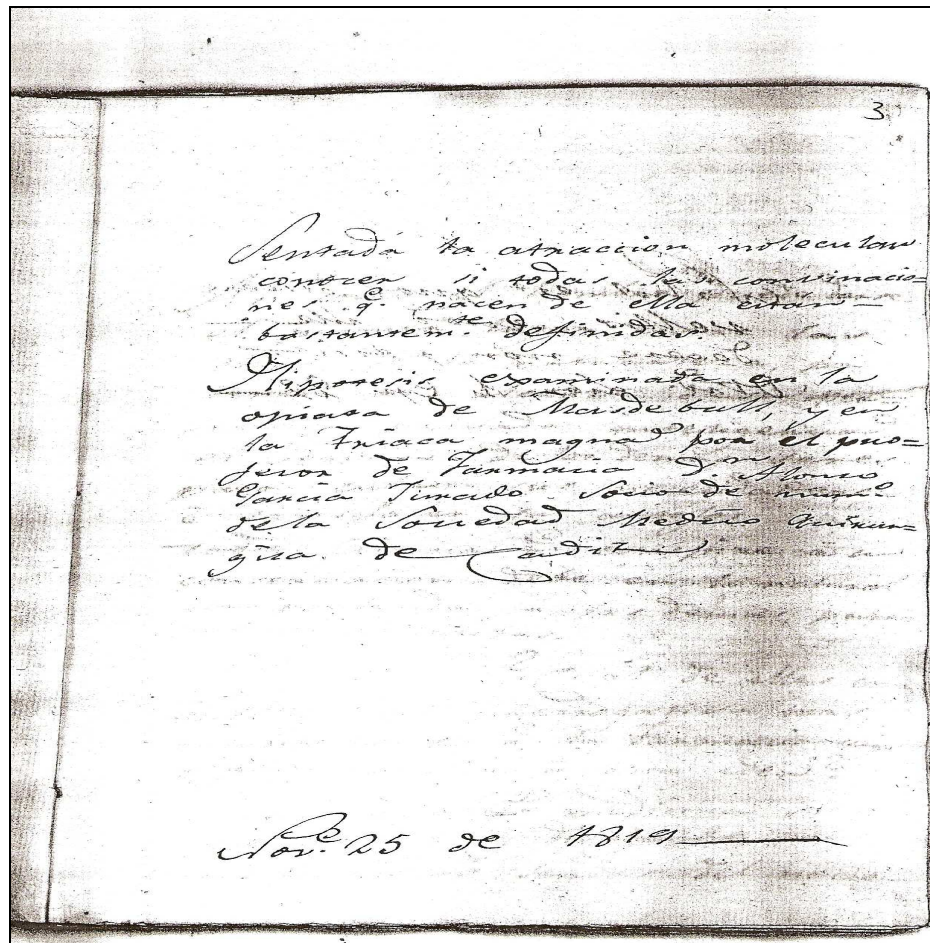 3
Sentada la atraccion molecular
conocer si todas las convinacio=
nes q.e nacen de ella estan
bastantem.te definidas.
Hipotesis examinada en la
opiata de Masdeball, y en
la Triaca magna por el pro=
fesor de Farmacia D.n Alonso
Garcia Jurado Socio de num.o
de la Sociedad Medico Quirur=
gica de Cadiz
Nov.e 25 de 1819